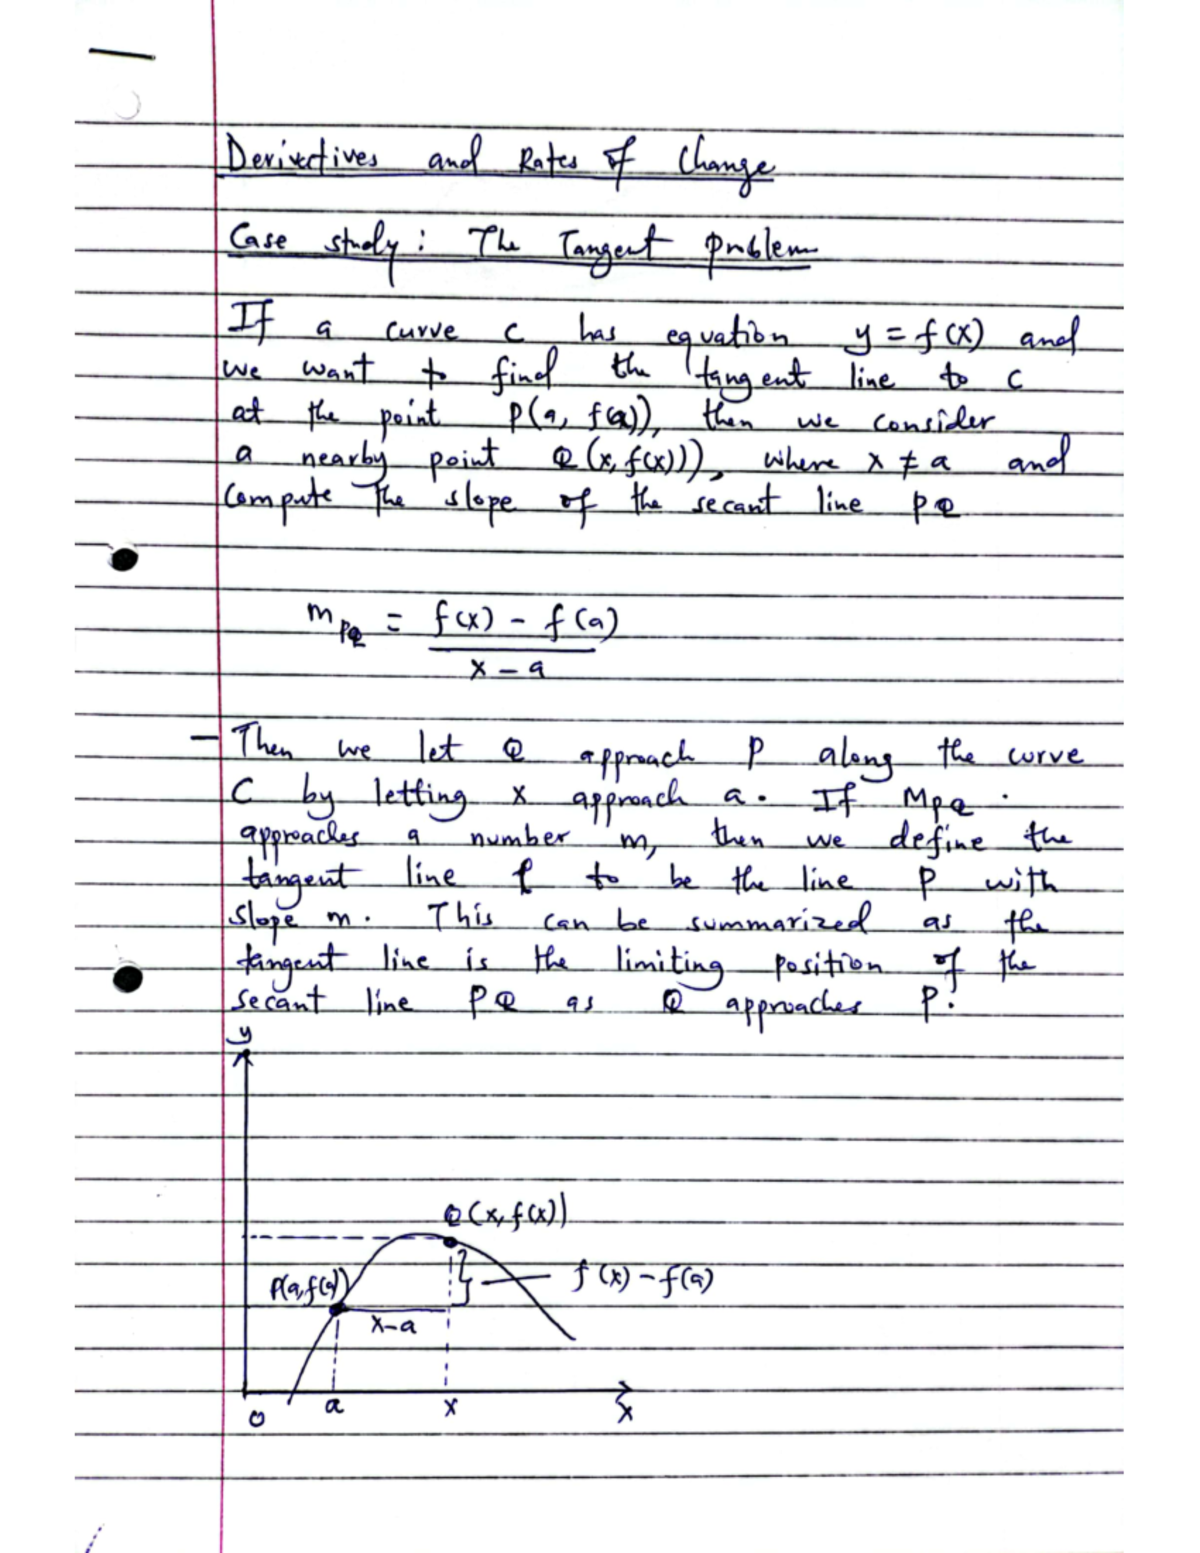 Derivatives and Rates of Change
Case study: The Tangent problem
If a curve C has equation y = f(x) and
we want to find the tangent line to C
at the point P(a, f(a)), then we consider
a nearby point Q(x, f(x))), where x ≠ a and
compute the slope of the secant line PQ
m_PQ = f(x) - f(a)
x - a
- Then we let Q approach P along the curve
C by letting x approach a. If MPQ
approacles a number m, then we define the
tangent line t to be the line P with
slope m. This can be summarized as the
tangent line is the limiting position of the
secant line PQ as Q approaches P.
y
Q(x, f(x))
P(a, f(a))
f(x) - f(a)
x-a
0 a x x